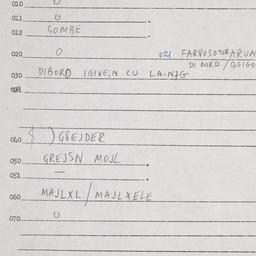 010 0
011 0
012 GOMBE
020 0 021
DI BORD /
030 DIBORD IGIVE,N CU LA-N7G
031
040 GREJDER
050 GREJSN MOJL
051 —
060 MAJLXL / MAJLXELE
070 0